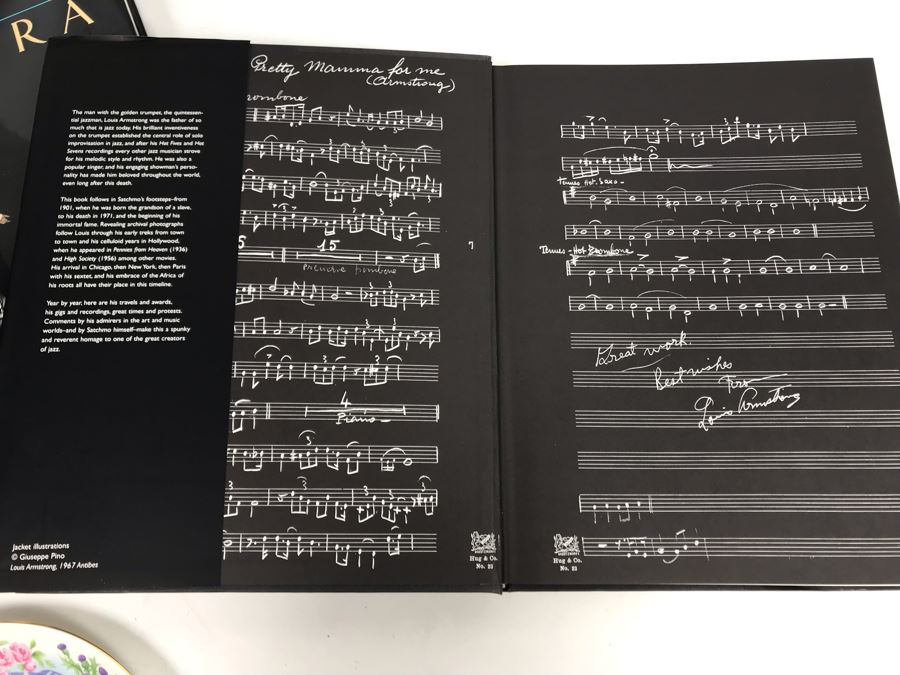 R A
The man with the golden trumpet, the quintessen-
tial jazzman, Louis Armstrong was the father of so
much that is jazz today. His brilliant inventiveness
on the trumpet established the central role of solo
improvisation in jazz, and after his Hot Fives and Hot
Sevens recordings every other jazz musician strove
for his melodic style and rhythm. He was also a
popular singer, and his engaging showman's perso-
nality has made him beloved throughout the world,
even long after this death.
This book follows in Satchmo's footsteps–from
1901, when he was born the grandson of a slave,
to his death in 1971, and the beginning of his
immortal fame. Revealing archival photographs
follow Louis through his early treks from town
to town and his celluloid years in Hollywood,
when he appeared in Pennies from Heaven (1936)
and High Society (1956) among other movies.
His arrival in Chicago, then New York, then Paris
with his sextet, and his embrace of the Africa of
his roots all have their place in this timeline.
Year by year, here are his travels and awards,
his gigs and recordings, great times and protests.
Comments by his admirers in the art and music
worlds–and by Satchmo himself–make this a spunky
and reverent homage to one of the great creators
of jazz.
Jacket illustrations
© Giuseppe Pino
Louis Armstrong, 1967 Antibes
Pretty Mamma for me
(Armstrong)
rombone
5 15
trombone
4
Piano
Hug & Co.
No. 23
Tenues Hot. Saxo -
Tenues - Hot Trombone
Great work.
Best wishes
Louis Armstrong
Hug & Co.
No. 23